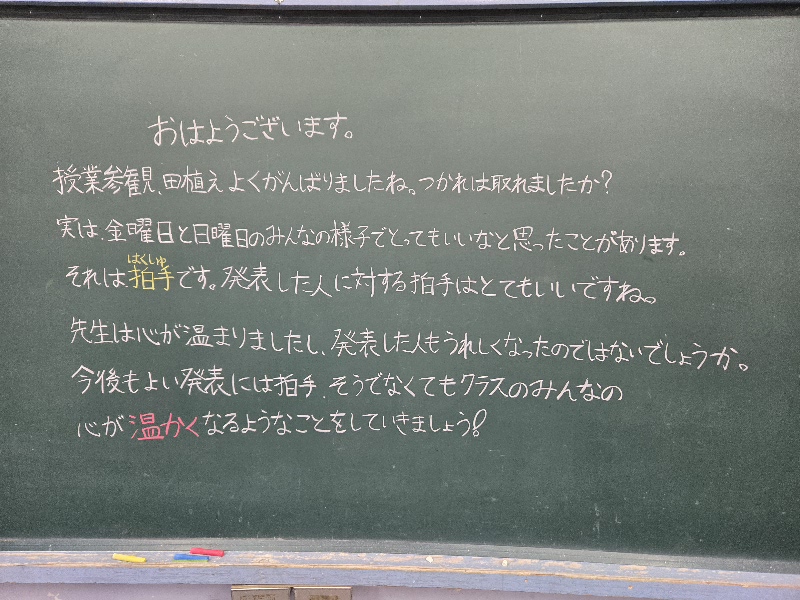 おはようございます。
授業参観、田植えよくがんばりましたね。つかれは取れましたか?
実は、金曜日と日曜日のみんなの様子でとってもいいなと思ったことがあります。
はくしゅ
それは拍手です。発表した人に対する拍手はとてもいいですね。
先生は心が温まりましたし、発表した人もうれしくなったのではないでしょうか。
今後もよい発表には拍手、そうでなくてもクラスのみんなの
心が温かくなるようなことをしていきましょう!